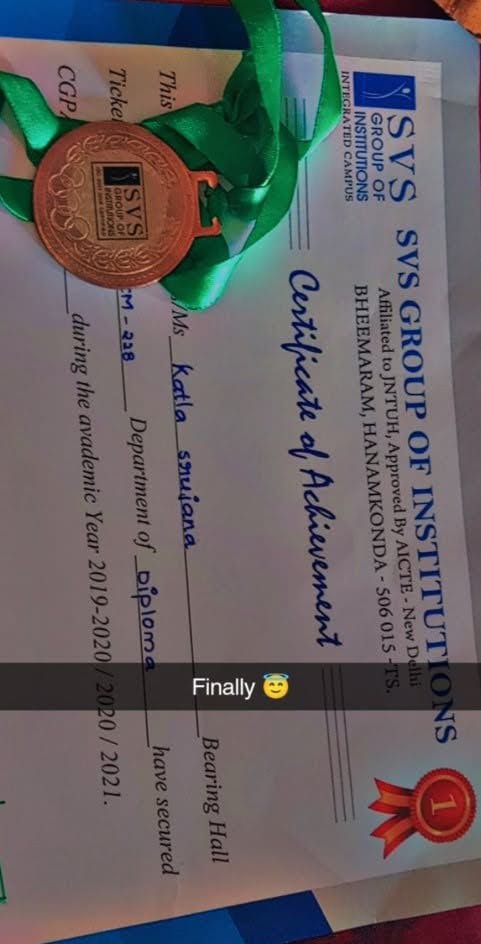 SVS
GROUP OF
INSTITUTIONS
INTEGRATED CAMPUS
SVS GROUP OF INSTITUTIONS
Affiliated to JNTUH, Approved By AICTE - New Delhi
BHEEMARAM, HANAMKONDA - 506 015 -TS.
1
Certificate of Achievement
This /Ms Katla srujana Bearing Hall
Ticke CM - 228 Department of Diploma have secured
CGP during the avademic Year 2019-2020 / 2020 / 2021.
SVS
GROUP OF
INSTITUTIONS
Finally 😇